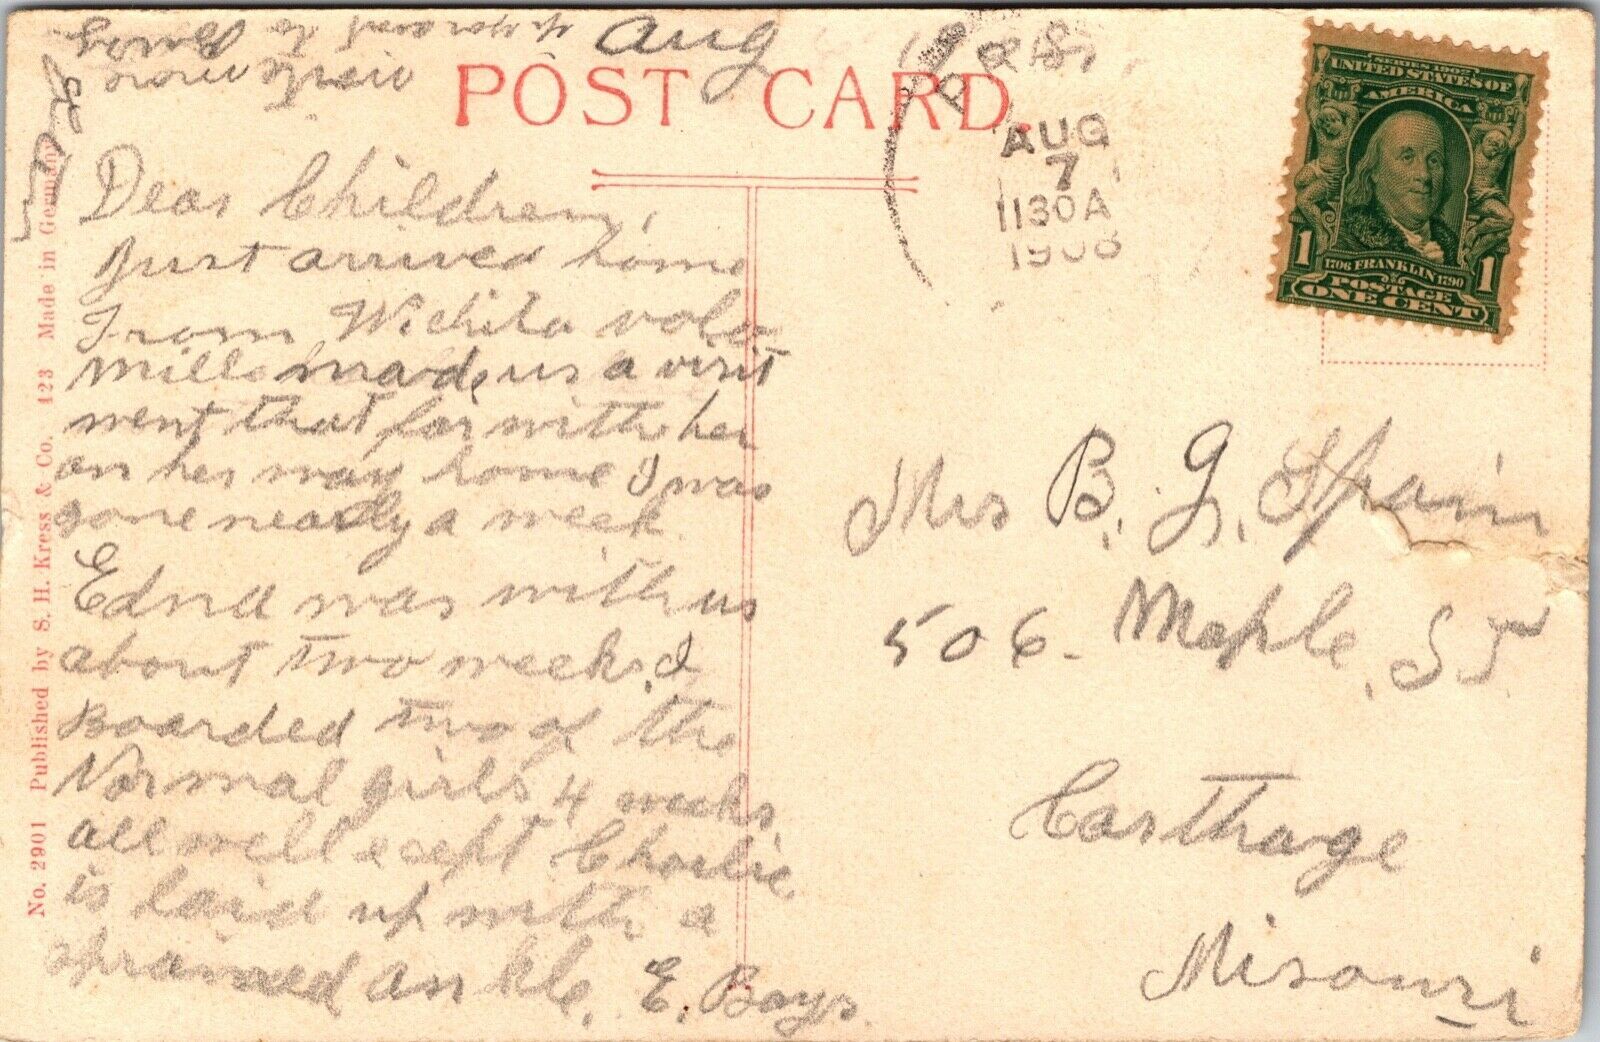 Aug
POST CARD.
AUG
7
1130A
1908
SERIES 1902
UNITED STATES OF
AMERICA
1706 FRANKLIN 1790
POSTAGE
1 ONE CENT 1
Dear Children,
Just arrived home
From Wichita
mills made us a visit
went that far with her
on her way home I was
gone nearly a week
Edna was with us
about two weeks, I
Boarded two of the
Normal girls 4 weeks,
all well except Charlie
is laid up with a
sprained ankle, E. Boys
Mrs B. G. Spain
506 - Maple, ST
Carthage
Missouri
No. 2901 Published by S. H. Kress & Co. 123 Made in Germany